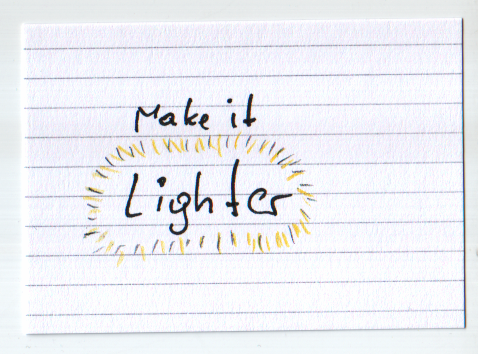 Make it
Lighter